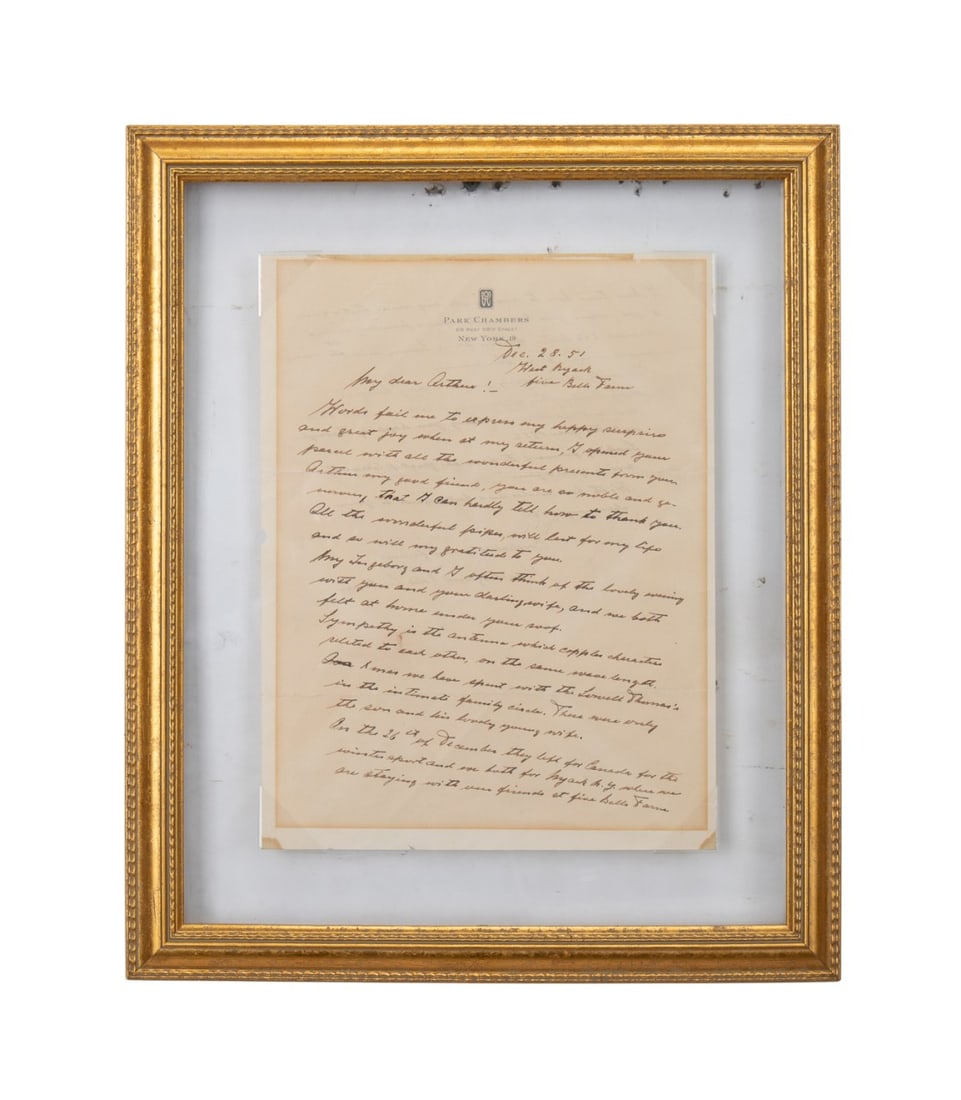 PARK CHAMBERS
NEW YORK 19
Dec. 28. 51
West Nyack
five Bells Farm
My dear Arthur!_
Words fail me to express my happy surprise
and great joy when at my return, I opened your
parcel with all the wonderful presents from you.
Arthur my good friend, you are so noble and ge-
nerous, that I can hardly tell how to thank you.
All the wonderful pipes, will last for my life
and so will my gratitude to you.
My Ingeborg and I often think of the lovely evening
with you and your darling wife, and we both
felt at home under your roof.
Sympathy is the antenna which copples characters
related to each other, on the same wave length.
Xmas we have spent with the Lowell Thomas's
in the intimate family circle. There were only
the son and his lovely young wife.
On the 26th of December they left for Canada for the
wintersport and we both for Nyack N.Y. where we
are staying with our friends at five Bells Farm